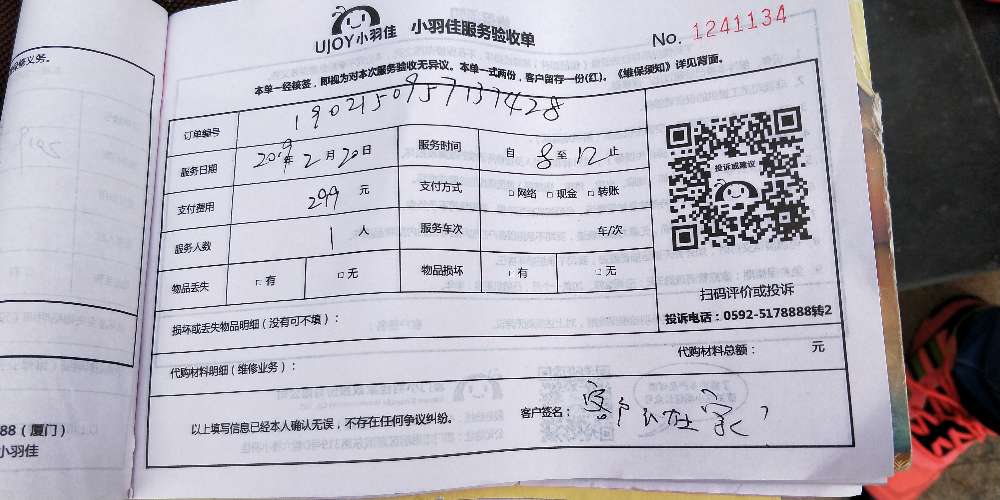 UJOY小羽佳 小羽佳服务验收单
No. 1241134
本单一经核签，即视为对本次服务验收无异议。本单一式两份，客户留存一份(红)。《维保须知》详见背面。
订单编号 190215095737428
服务日期 2019年2月20日 服务时间 自8至12止
支付费用 299元 支付方式 □网络 □现金 □转账
服务人数 1人 服务车次 车/次
物品丢失 □有 □无 物品损坏 □有 □无
投诉或建议
扫码评价或投诉
投诉电话：0592-5178888转2
损坏或丢失物品明细（没有可不填）：
代购材料明细（维修业务）： 代购材料总额： 元
以上填写信息已经本人确认无误，不存在任何争议纠纷。 客户签名：客户不在家
保修义务。
88（厦门）
小羽佳